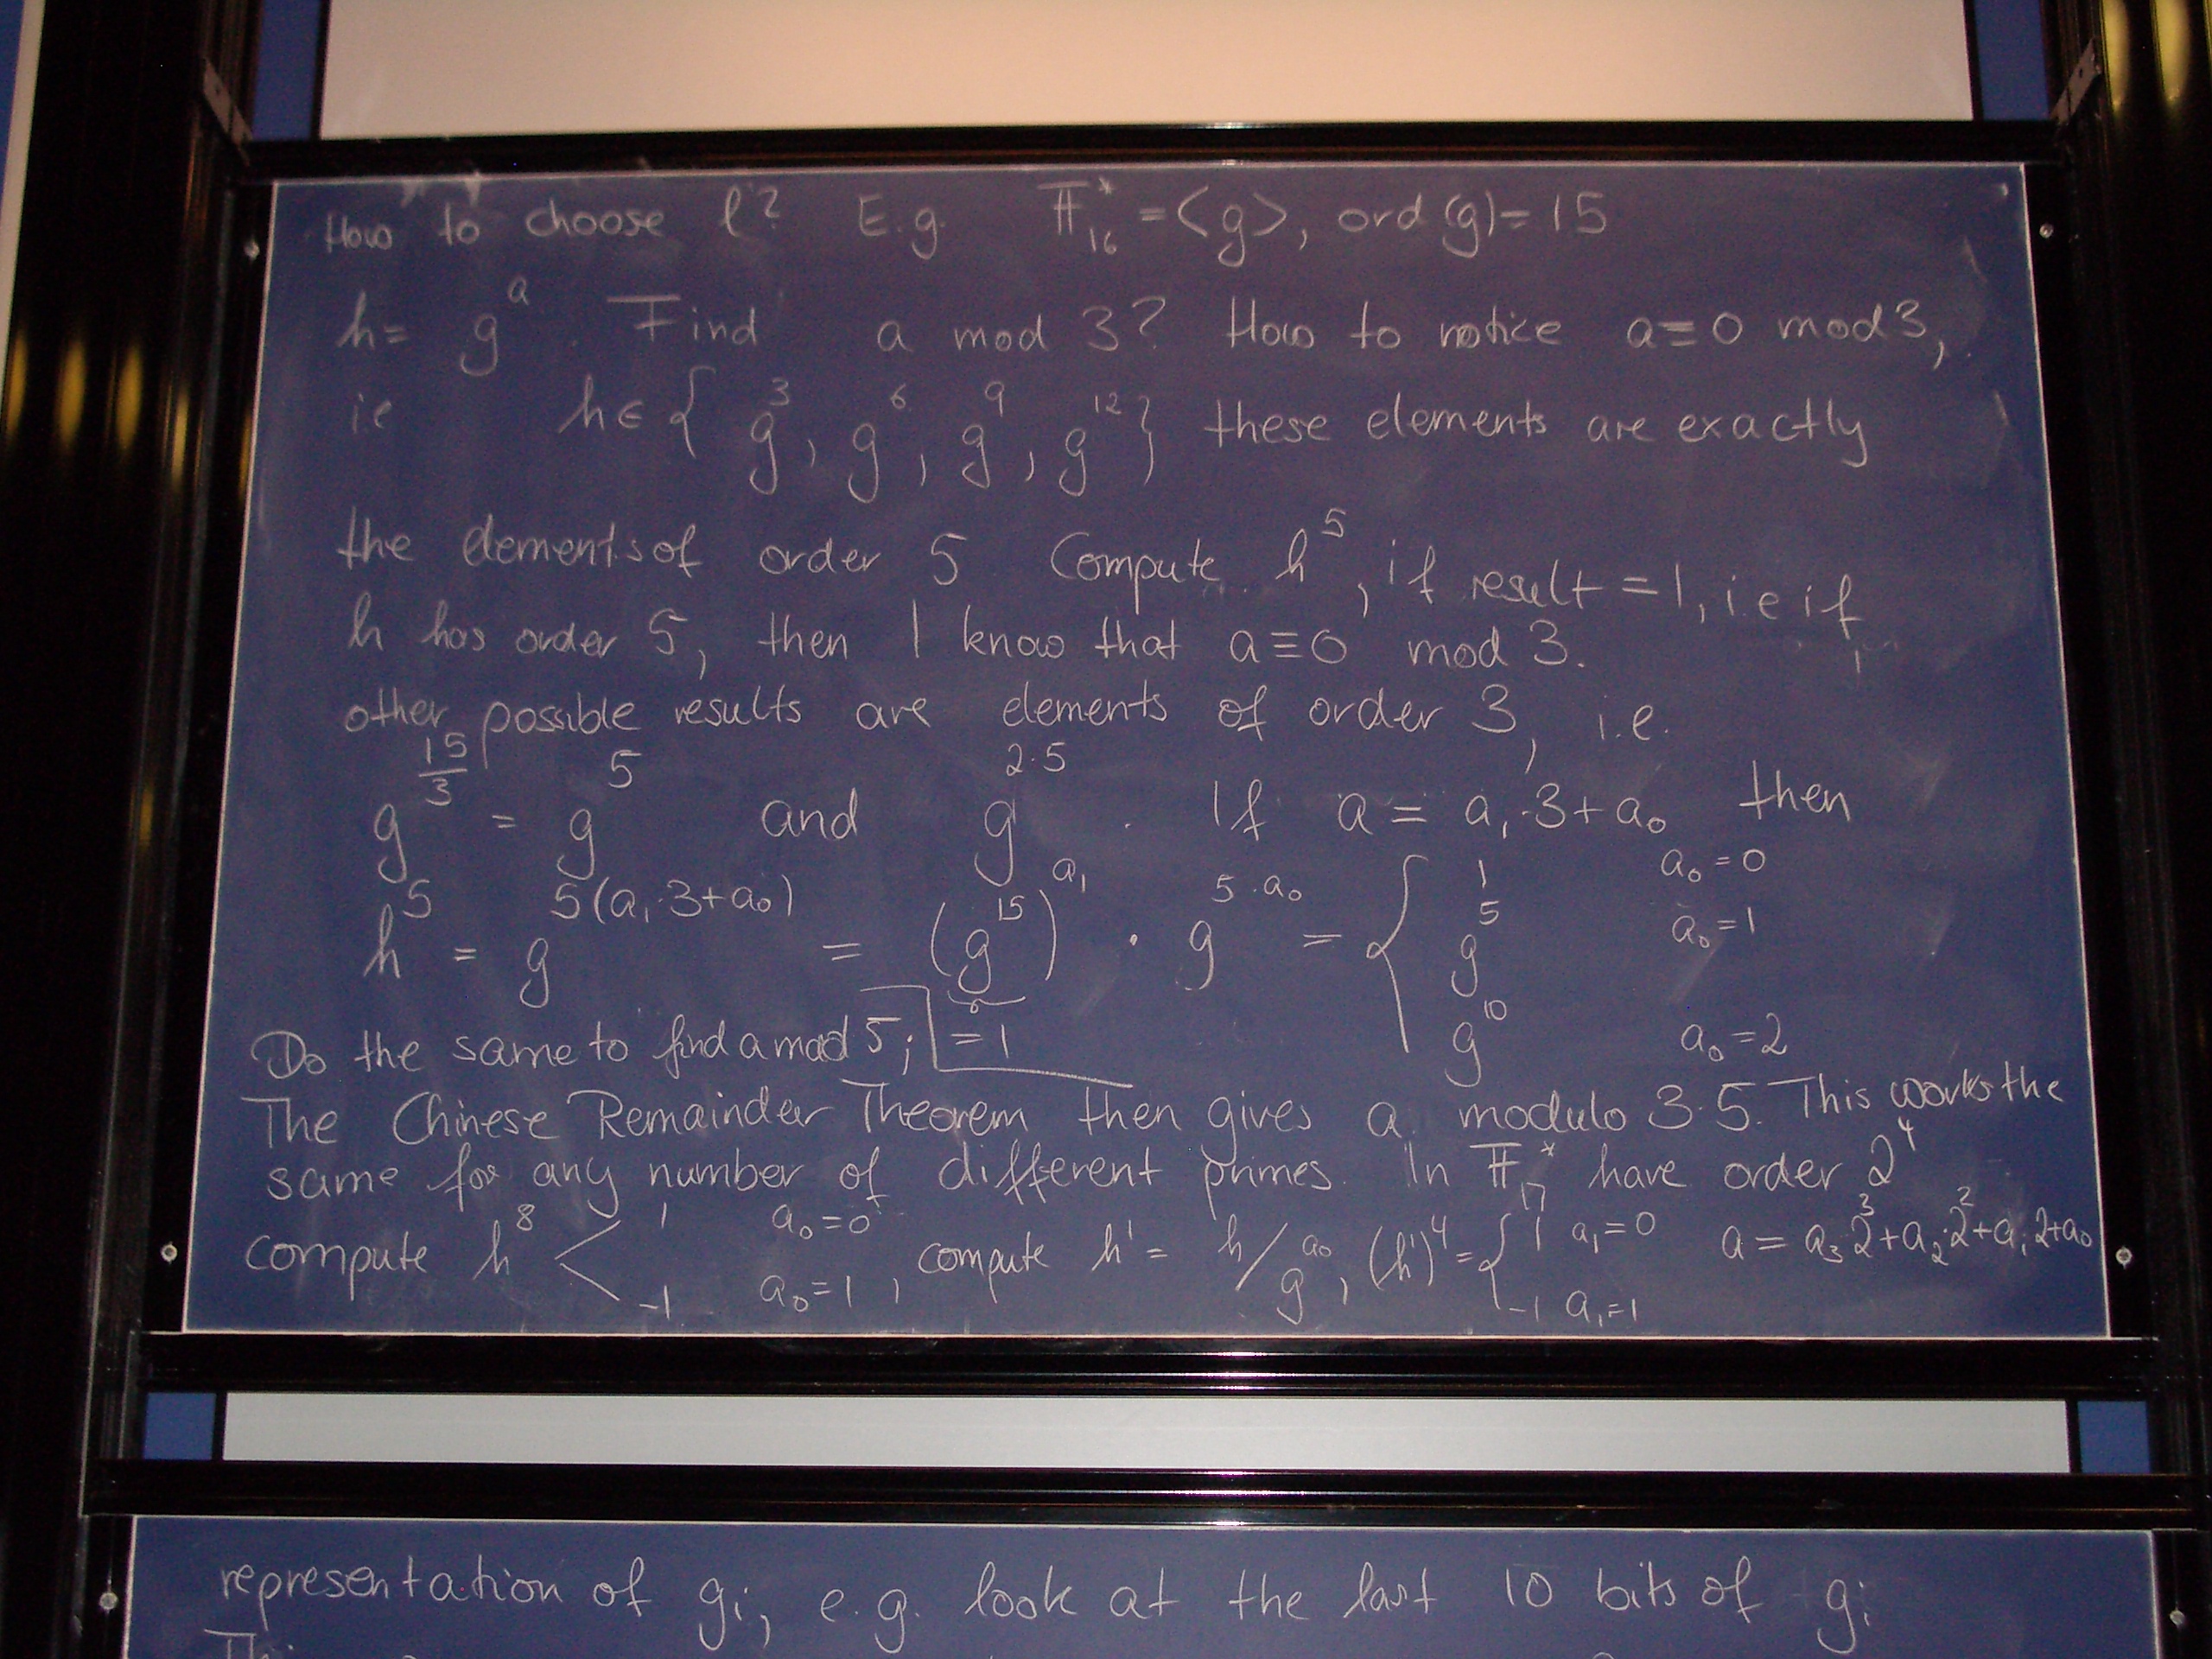 How to choose l? E.g. 𝔽₁₆* = <g>, ord(g) = 15
h = gᵃ. Find a mod 3? How to notice a ≡ 0 mod 3,
i.e. h ∈ { g³, g⁶, g⁹, g¹² } these elements are exactly
the elements of order 5 Compute h⁵, if result = 1, i.e if
h has order 5, then I know that a ≡ 0 mod 3.
other possible results are elements of order 3, i.e.
g^(15/3) = g⁵ and g^(2·5). If a = a₁·3 + a₀ then
h⁵ = g^(5(a₁·3+a₀)) = (g¹⁵)^(a₁) · g^(5·a₀) = { 1 a₀ = 0
g⁵ a₀ = 1
g¹⁰ a₀ = 2
Do the same to find a mod 5; = 1
The Chinese Remainder Theorem then gives a modulo 3·5. This works the
same for any number of different primes. In 𝔽₁₇* have order 2⁴
compute h⁸ < 1 a₀ = 0 -1 a₀ = 1, compute h' = h/g^(a₀), (h')⁴ = { 1 a₁ = 0 -1 a₁ = 1 a = a₃2³ + a₂·2² + a₁·2 + a₀
representation of gᵢ, e.g. look at the last 10 bits of gᵢ